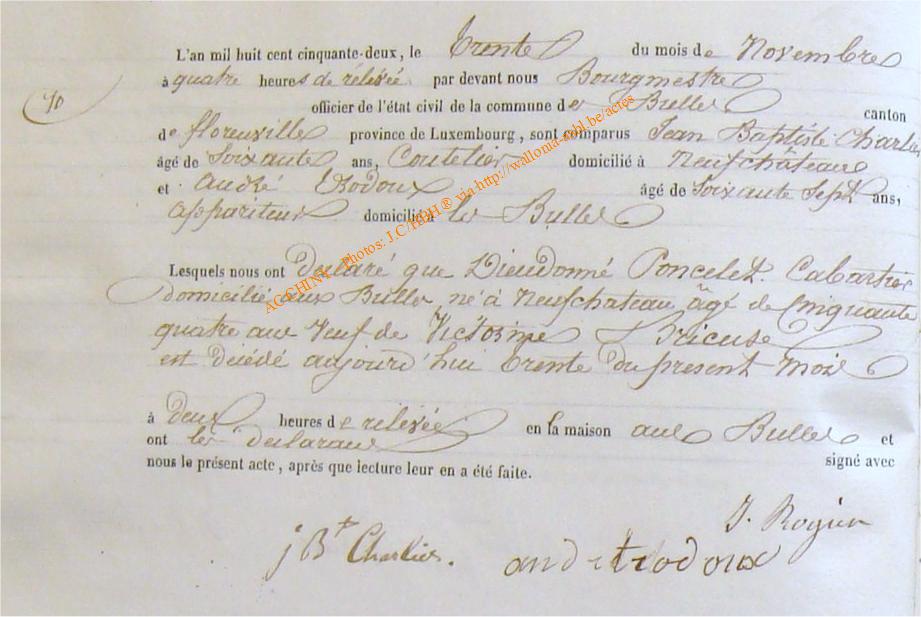 L'an mil huit cent cinquante-deux, le trente du mois de Novembre
à quatre heures de rélévée par devant nous Bourgmestre
10
officier de l'état civil de la commune de Bulles canton
de florenville province de Luxembourg, sont comparus Jean Baptiste Charlier
âgé de Soixante ans, Coutelier domicilié à Neufchâteau
et André âgé de Soixante Sept ans,
appariteur domicilié à Bulles
AGCCHINY - Photos: J.C/HBH ® via http://wallonia-asbl.be/actes
Lesquels nous ont déclaré que Dieudonné Poncelet Cabartier
domicilié aux Bulles né à Neufchateau âgé de Cinquante
quatre ans Veuf de Victorine
est décédé aujourd'hui trente du present mois
à deux heures de rélévée en la maison aux Bulles et
ont les déclarans signé avec
nous le présent acte, après que lecture leur en a été faite.
J. Rogier
j Bte Charlier.